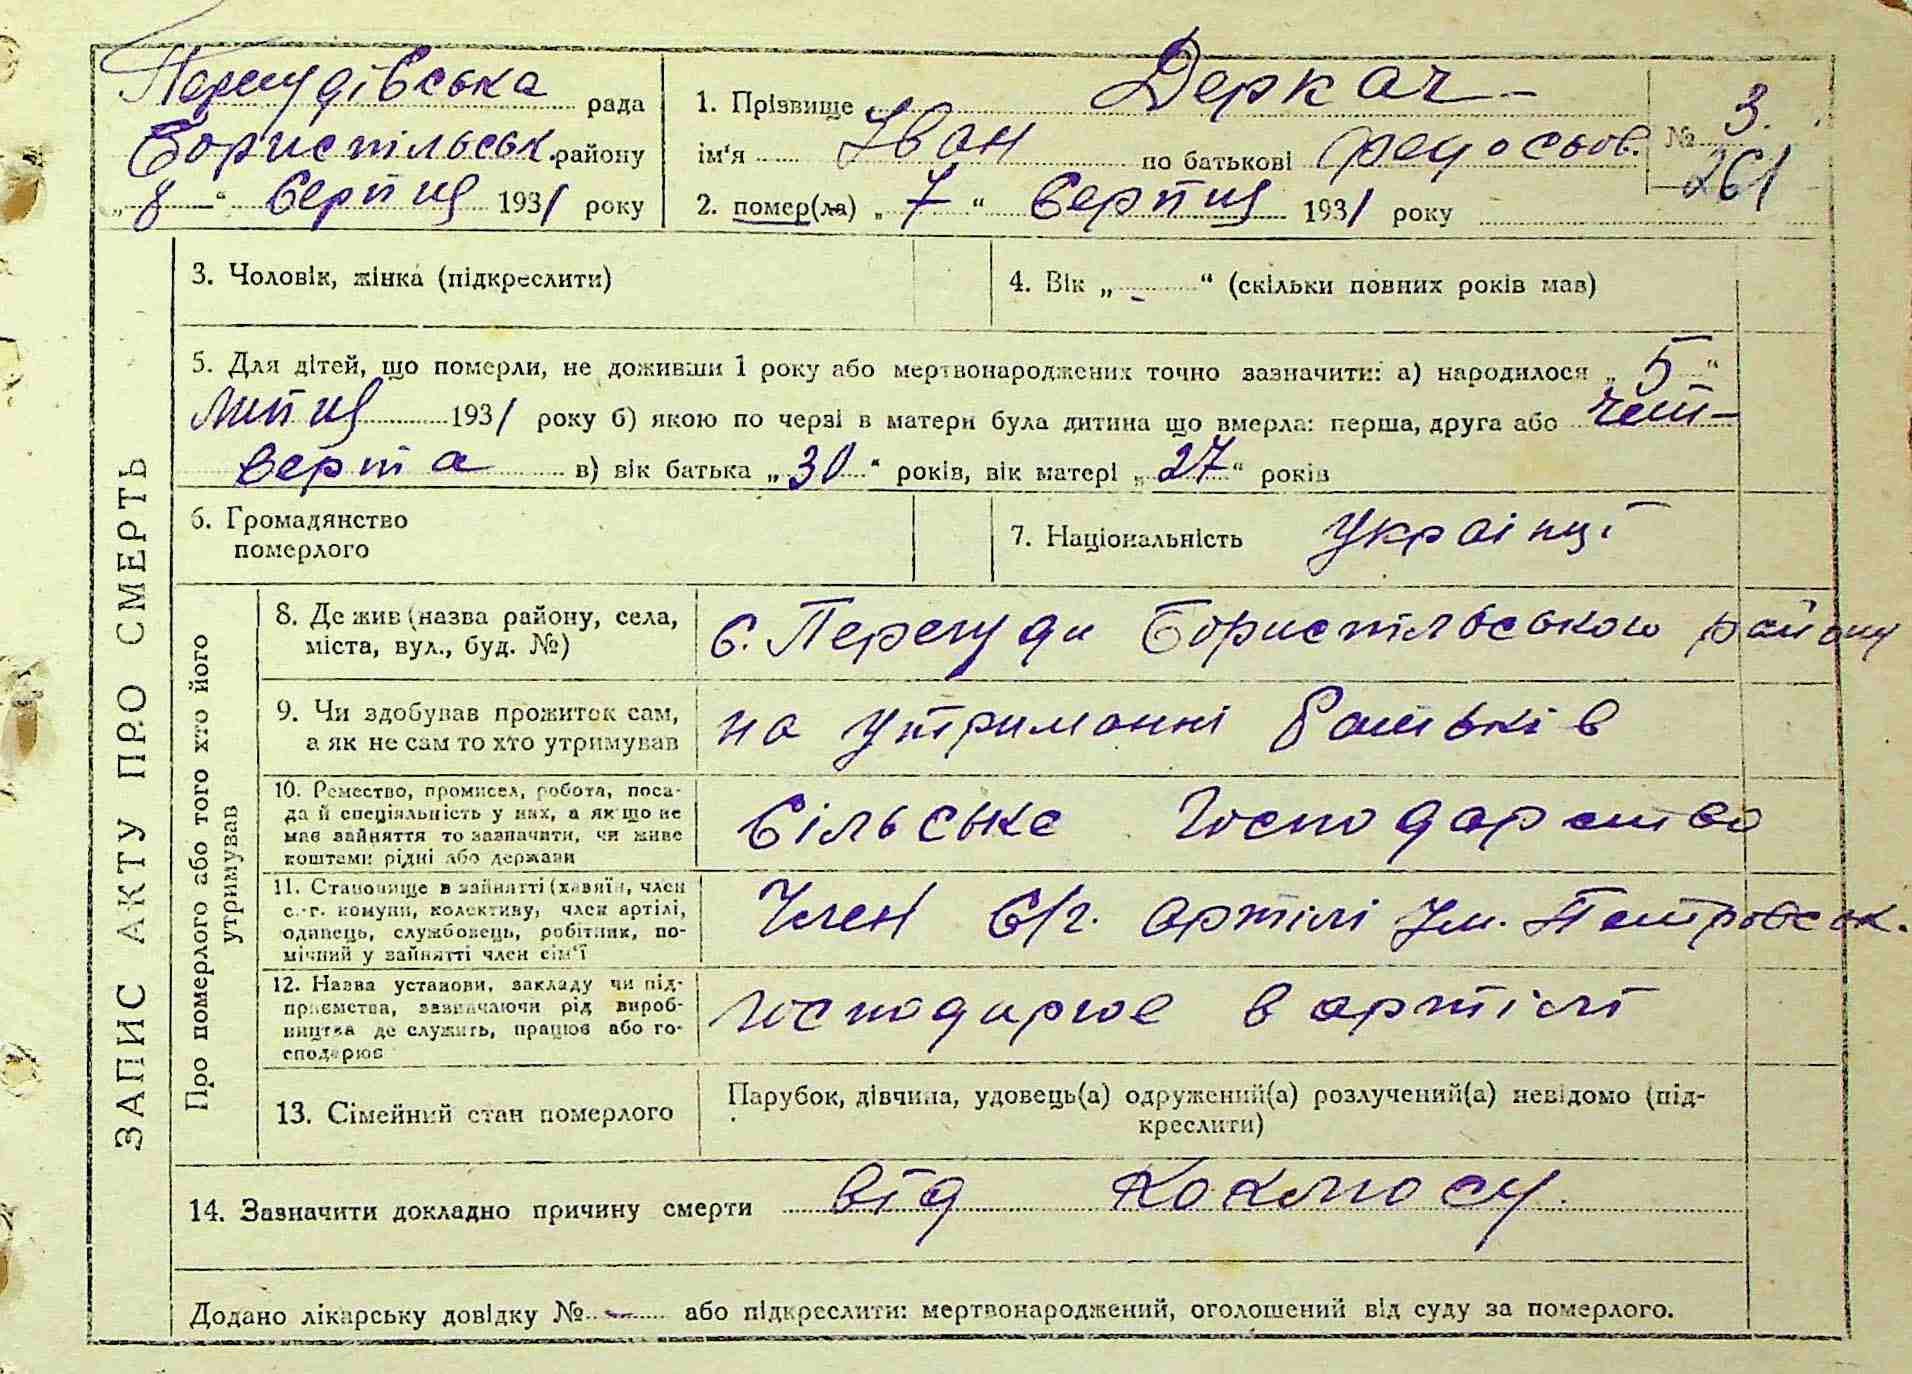 Перегудівська рада
Бориспільськ. району
„ 8 “ Серпня 1931 року
1. Прізвище Деркач
ім‘я Іван по батькові Федосьов.
2. помер(ла) „ 7 “ Серпня 1931 року
№ 3.
261
ЗАПИС АКТУ ПРО СМЕРТЬ
3. Чоловік, жінка (підкреслити)
4. Вік „ - “ (скільки повних років мав)
5. Для дітей, що померли, не доживши 1 року або мертвонароджених точно зазначити: а) народилося „ 5 “
Липня 1931 року б) якою по черзі в матери була дитина що вмерла: перша, друга або чет-
верта в) вік батька „ 30 “ років, вік матері „ 27 “ років
6. Громадянство
померлого
7. Національність Українці
Про померлого або того хто його
утримував
8. Де жив (назва району, села,
міста, вул., буд. №)
с. Перегуди Бориспільського району
9. Чи здобував прожиток сам,
а як не сам то хто утримував
на утриманні батьків
10. Ремество, промисел, робота, поса-
да й спеціяльність у них, а якщо не
має зайняття то зазначити, чи живе
коштами рідні або держави
Сільське господарство
11. Становище в зайнятті (хазяїн, член
с.-г. комуни, колективу, член артілі,
одинець, службовець, робітник, по-
мічний у зайнятті член сім‘ї
Член с/г. артілі Ім. Петровськ.
12. Назва установи, закладу чи під-
приємства, зазначаючи рід вироб-
ництва де служить, працює або го-
сподарює
господарює в артілі
13. Сімейний стан померлого
Парубок, дівчина, удовець(а) одружений(а) розлучений(а) невідомо (під-
креслити)
14. Зазначити докладно причину смерти від коклюсу.
Додано лікарську довідку № - або підкреслити: мертвонароджений, оголошений від суду за померлого.